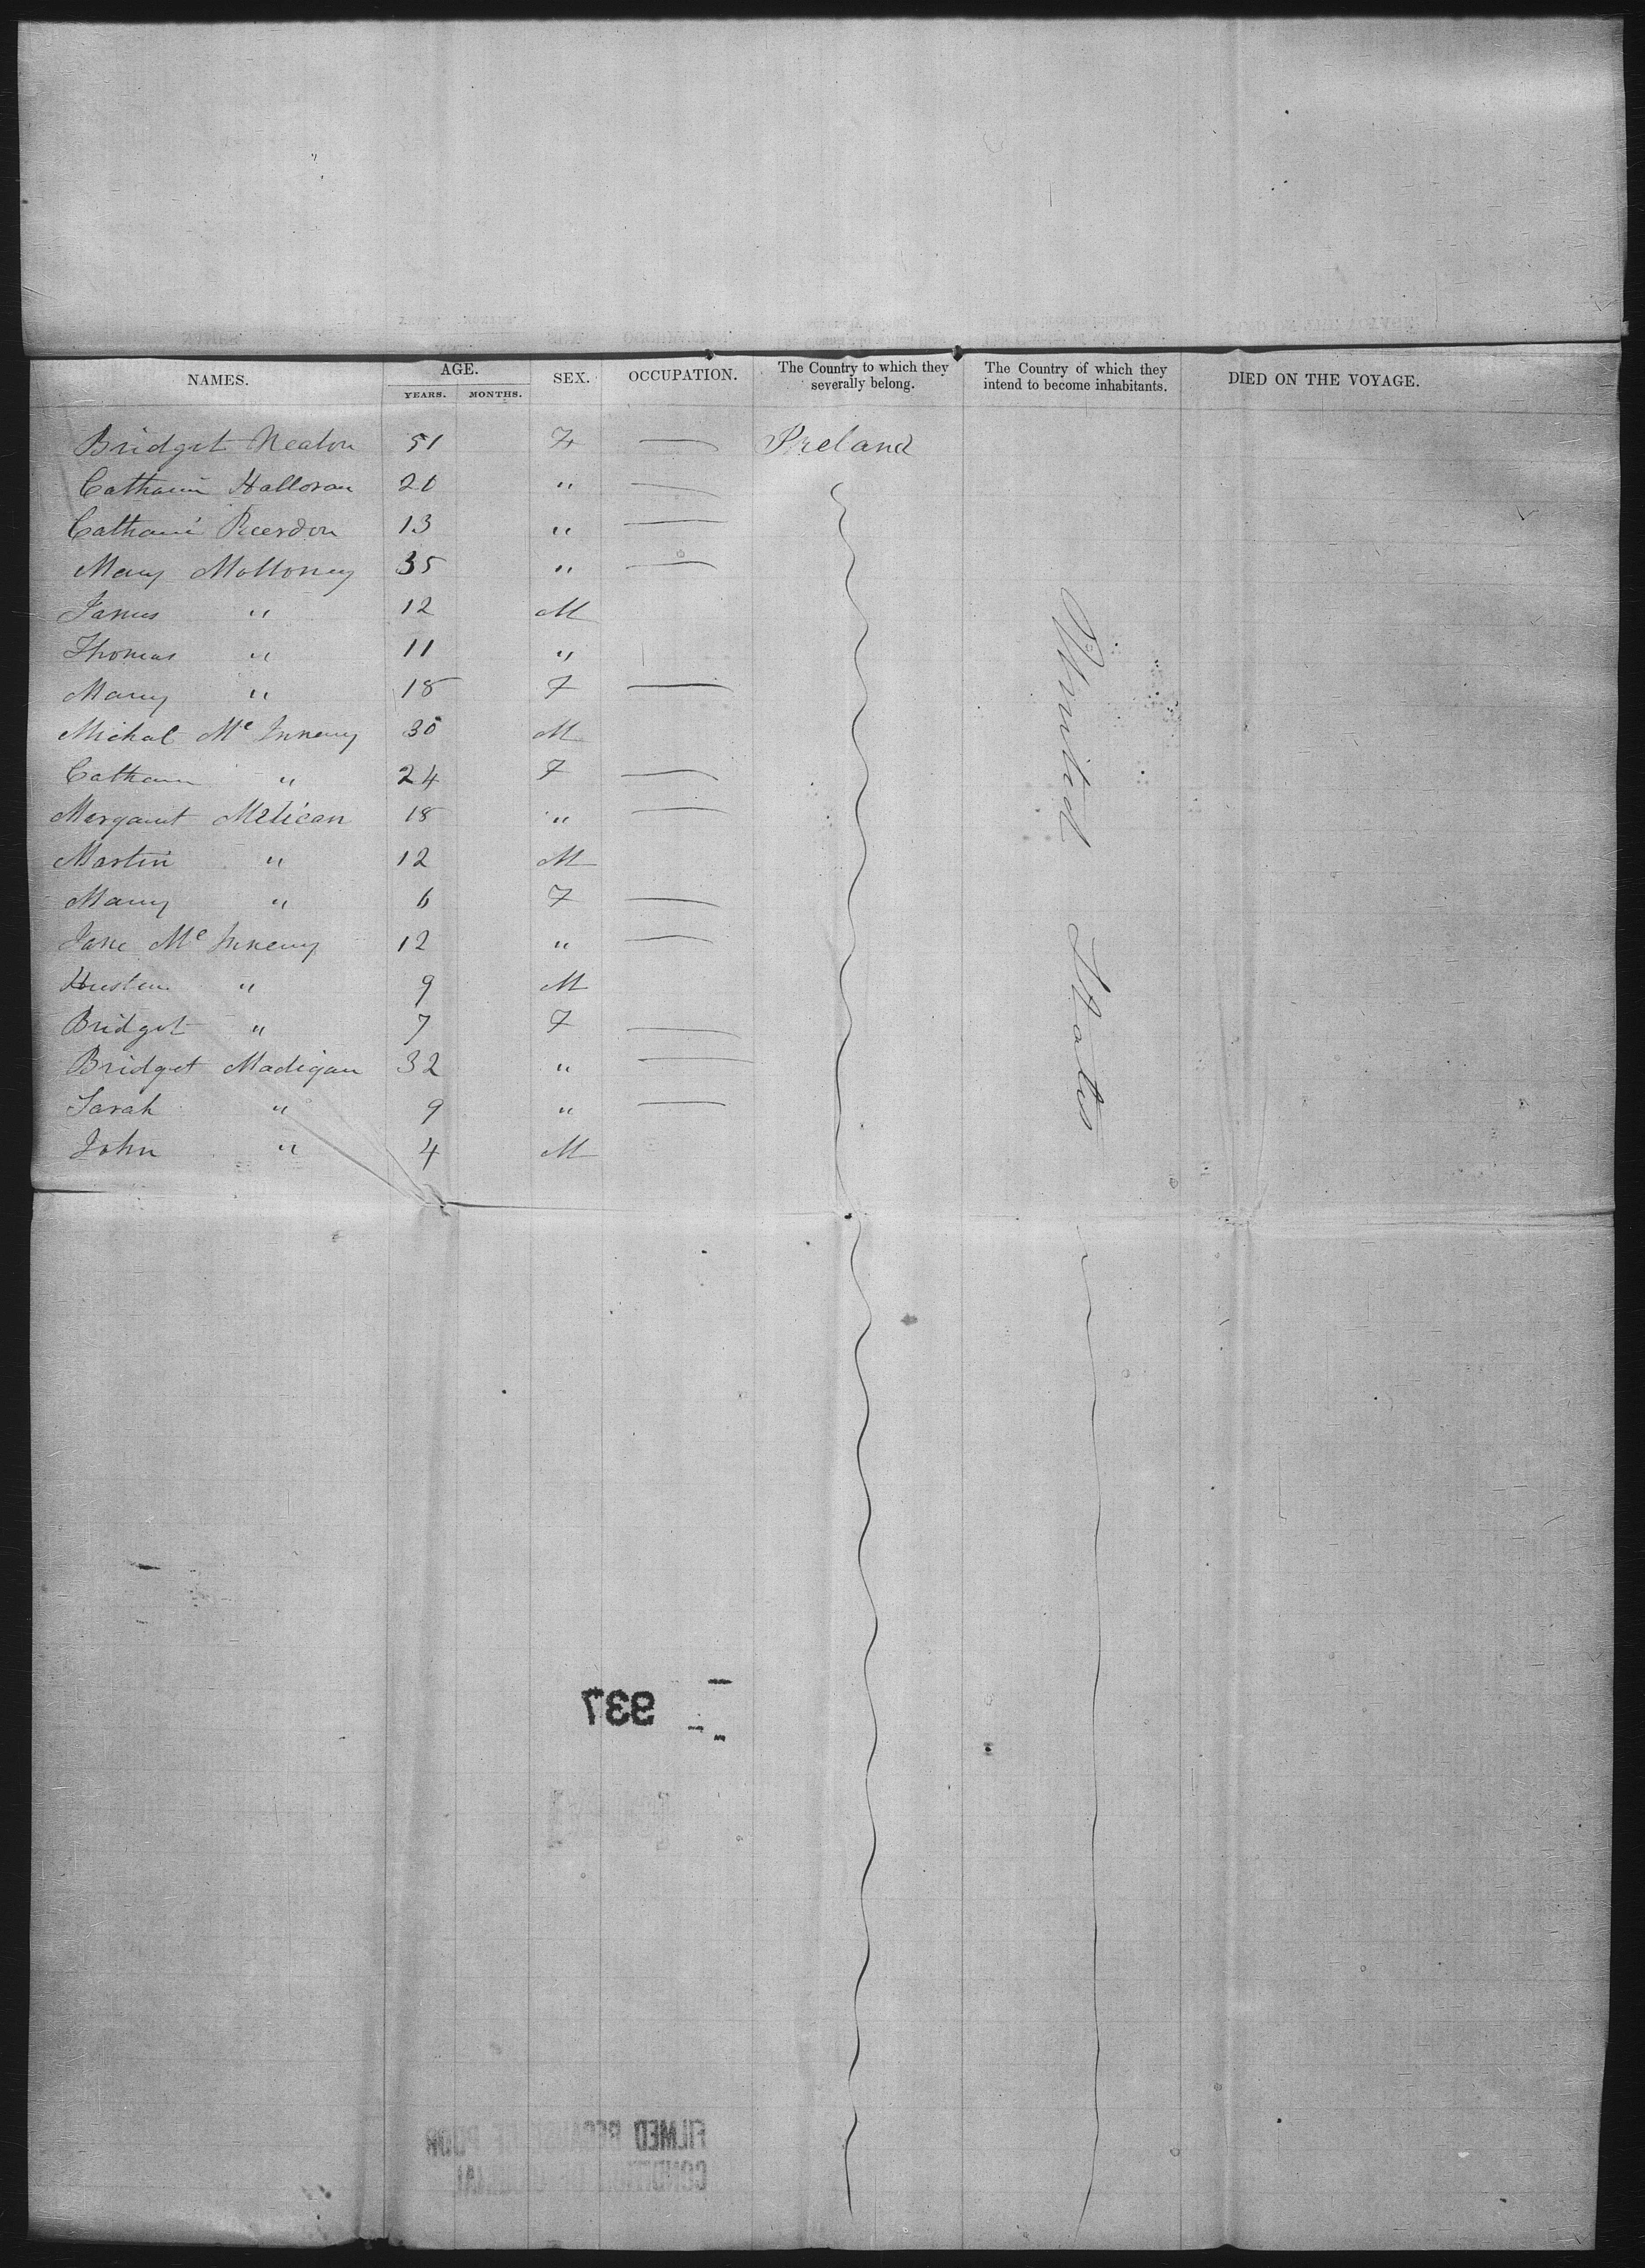 NAMES. AGE. SEX. OCCUPATION. The Country to which they severally belong. The Country of which they intend to become inhabitants. DIED ON THE VOYAGE.
YEARS. MONTHS.
Bridget Neaton 51 F — Ireland
Catharin Halloran 20 " —
Catharin Reerdon 13 " —
Mary Molloney 35 " —
James " 12 M
Thomas " 11 "
Mary " 18 F —
Michal Mc Inneny 30 M
Catharin " 24 F —
Margaret Melican 18 " —
Martin " 12 M
Mary " 6 F —
Jane Mc Inneny 12 " —
" 9 M
Bridget " 7 F —
Bridget Madigan 32 " —
Sarah " 9 " —
John " 4 M
United States
937
FILMED BECAUSE OF POOR
CONDITION OF ORIGINAL